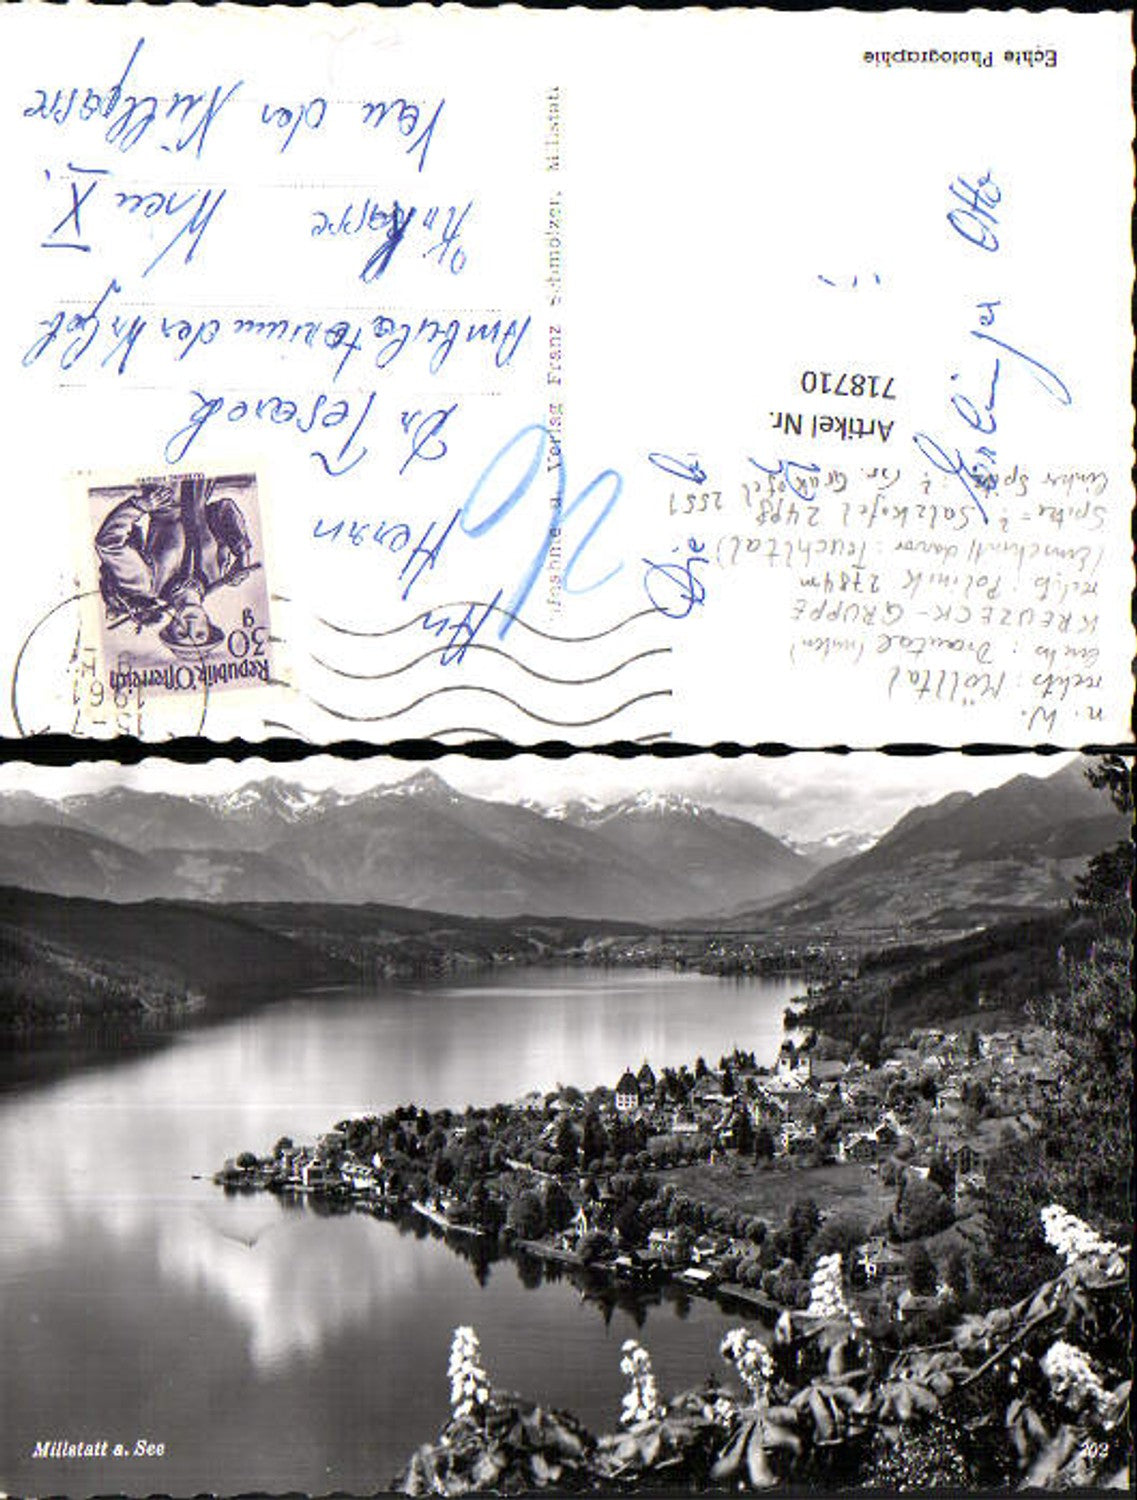 Echte Photographie
An
Herrn
Dr Tesarek
Ambulatorium der
Wien X.
Van der Nüllgasse
Die
Otto
Artikel Nr.
718710
Aufnahme u. Verlag Franz Schmölzer, Millstatt
n. W.
rechts: Mölltal
links: Drautal (unten)
KREUZECK-GRUPPE
rechts: Polinik 2784m
(Einschnitt davor: Teuchltal)
Spitze = Salzkofel 2498
linker Spitz: Gr. Grakofel 2551
Republik Österreich
30 g
15.-7
1961
Millstatt a. See
202